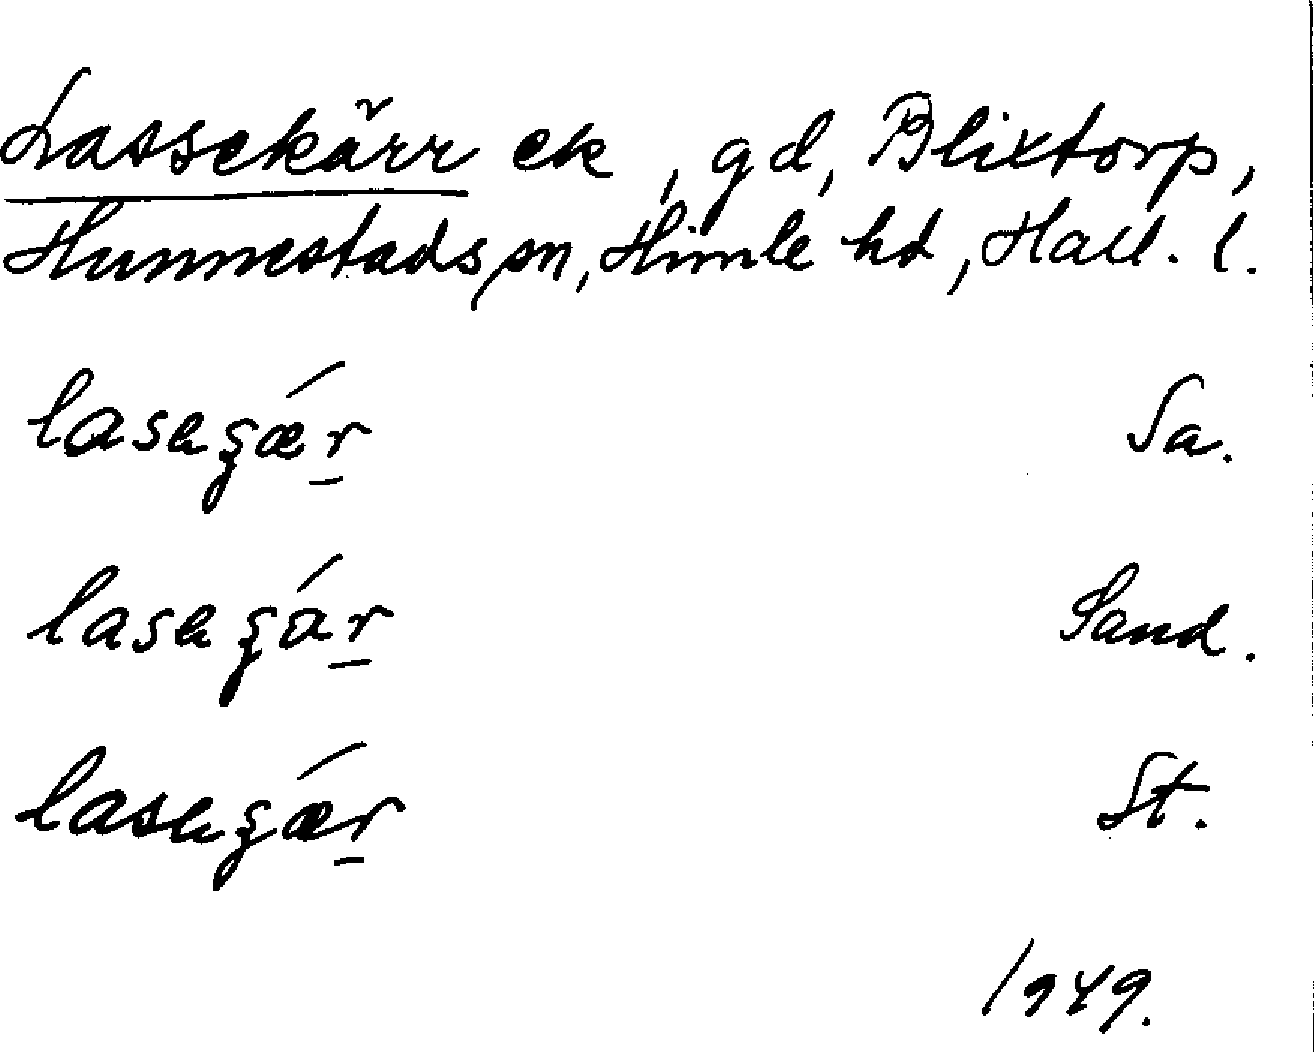 Lassekärr ek, gd, Blixtorp,
Hunnestads sn, Himle hd, Hall. l.
lasagǽr Sa.
lasagár Sand.
lasagǽr St.
1949.